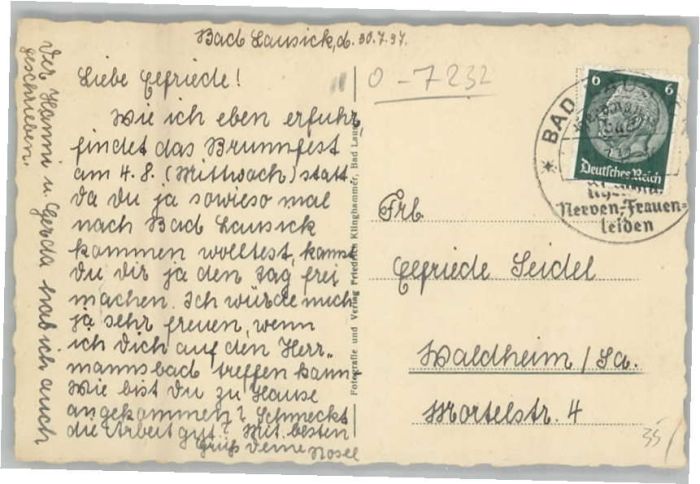 Bad Lausick, d. 30.7.37.
Liebe Elfriede!
Wie ich eben erfuhr,
findet das Brunnfest
am 4.8. (Mittwoch) statt.
da du ja sowieso mal
nach Bad Lausick
kommen wolltest, kannst
Du dir ja den Tag frei
machen. Ich würde mich
ja sehr freuen, wenn
ich Dich auf den Herr-
mannsbad treffen kann.
Wie bist Du zu Hause
angekommen? Schmeckt
die Arbeit gut? Mit besten
Gruß deine Rosel
Der Hanni u Gerda hab ich auch
geschrieben.
Fotografie und Verlag Friedrich Klinghammer, Bad Lausick
0-7232
6 6
Deutsches Reich
BAD
Nerven-, Frauen-
leiden
Frl.
Elfriede Seidel
Waldheim / Sa.
Mortelstr. 4
35/